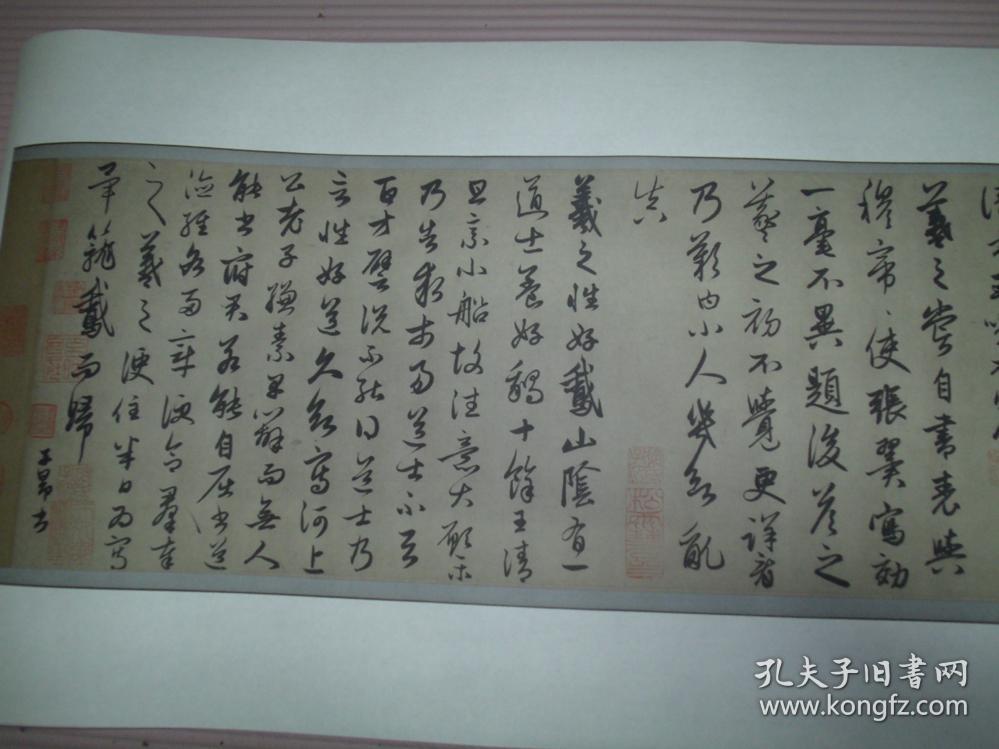 羲之嘗自書表與
穆帝、使張翼寫効
一毫不異題後答之
羲之初不覺更詳看
乃歎曰小人幾欲亂
真
羲之性好鵞山陰有一
道士養好鵝十餘王清
旦乘小船故往意大願樂
乃告求市易道士不言
百方譬說不能得道士乃
言性好道久欲寫河上
公老子縑素早辦而無人
能書府君若能自屈書道
德經各兩章便合羣奉
之羲之便住半日為寫
畢籠鵞而歸
子昂書
孔夫子旧書网
www.kongfz.com